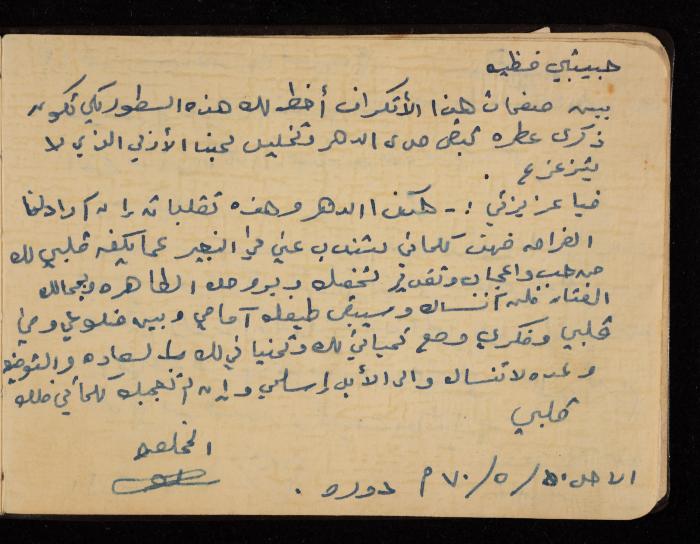 حبيبتي فظيه
بين صفحات هذا الأتكراف أخط لك هذه السطور لكي تكون
ذكرى عطره تبقى مدى الدهر وتخليد لحبنا الأزلي الذي لا
يتزعزع .
فيا عزيزتي :- هكذا الدهر وهذه تقلباته وإن آرادلنا
الفراق فهذه كلماتي ستنوب عني في التعبير عما يكنه قلبي لك
من حب واعجاب وتقدير لشخصك و بروحك الطاهره وبجمالك
الفتان فلن آنساك وسيبقى طيفك آمامي وبين ضلوعي وفي
قلبي وفكري ومع تحياتي لك وتمنياتي لك بالسعاده والتوفيق
وعده لا تنساك والى الأبد إسلمي وإن لم تعجبك كلماتي فلك
قلبي
المخلصه
الاحد / ٥ / ٧٠ م دوره .